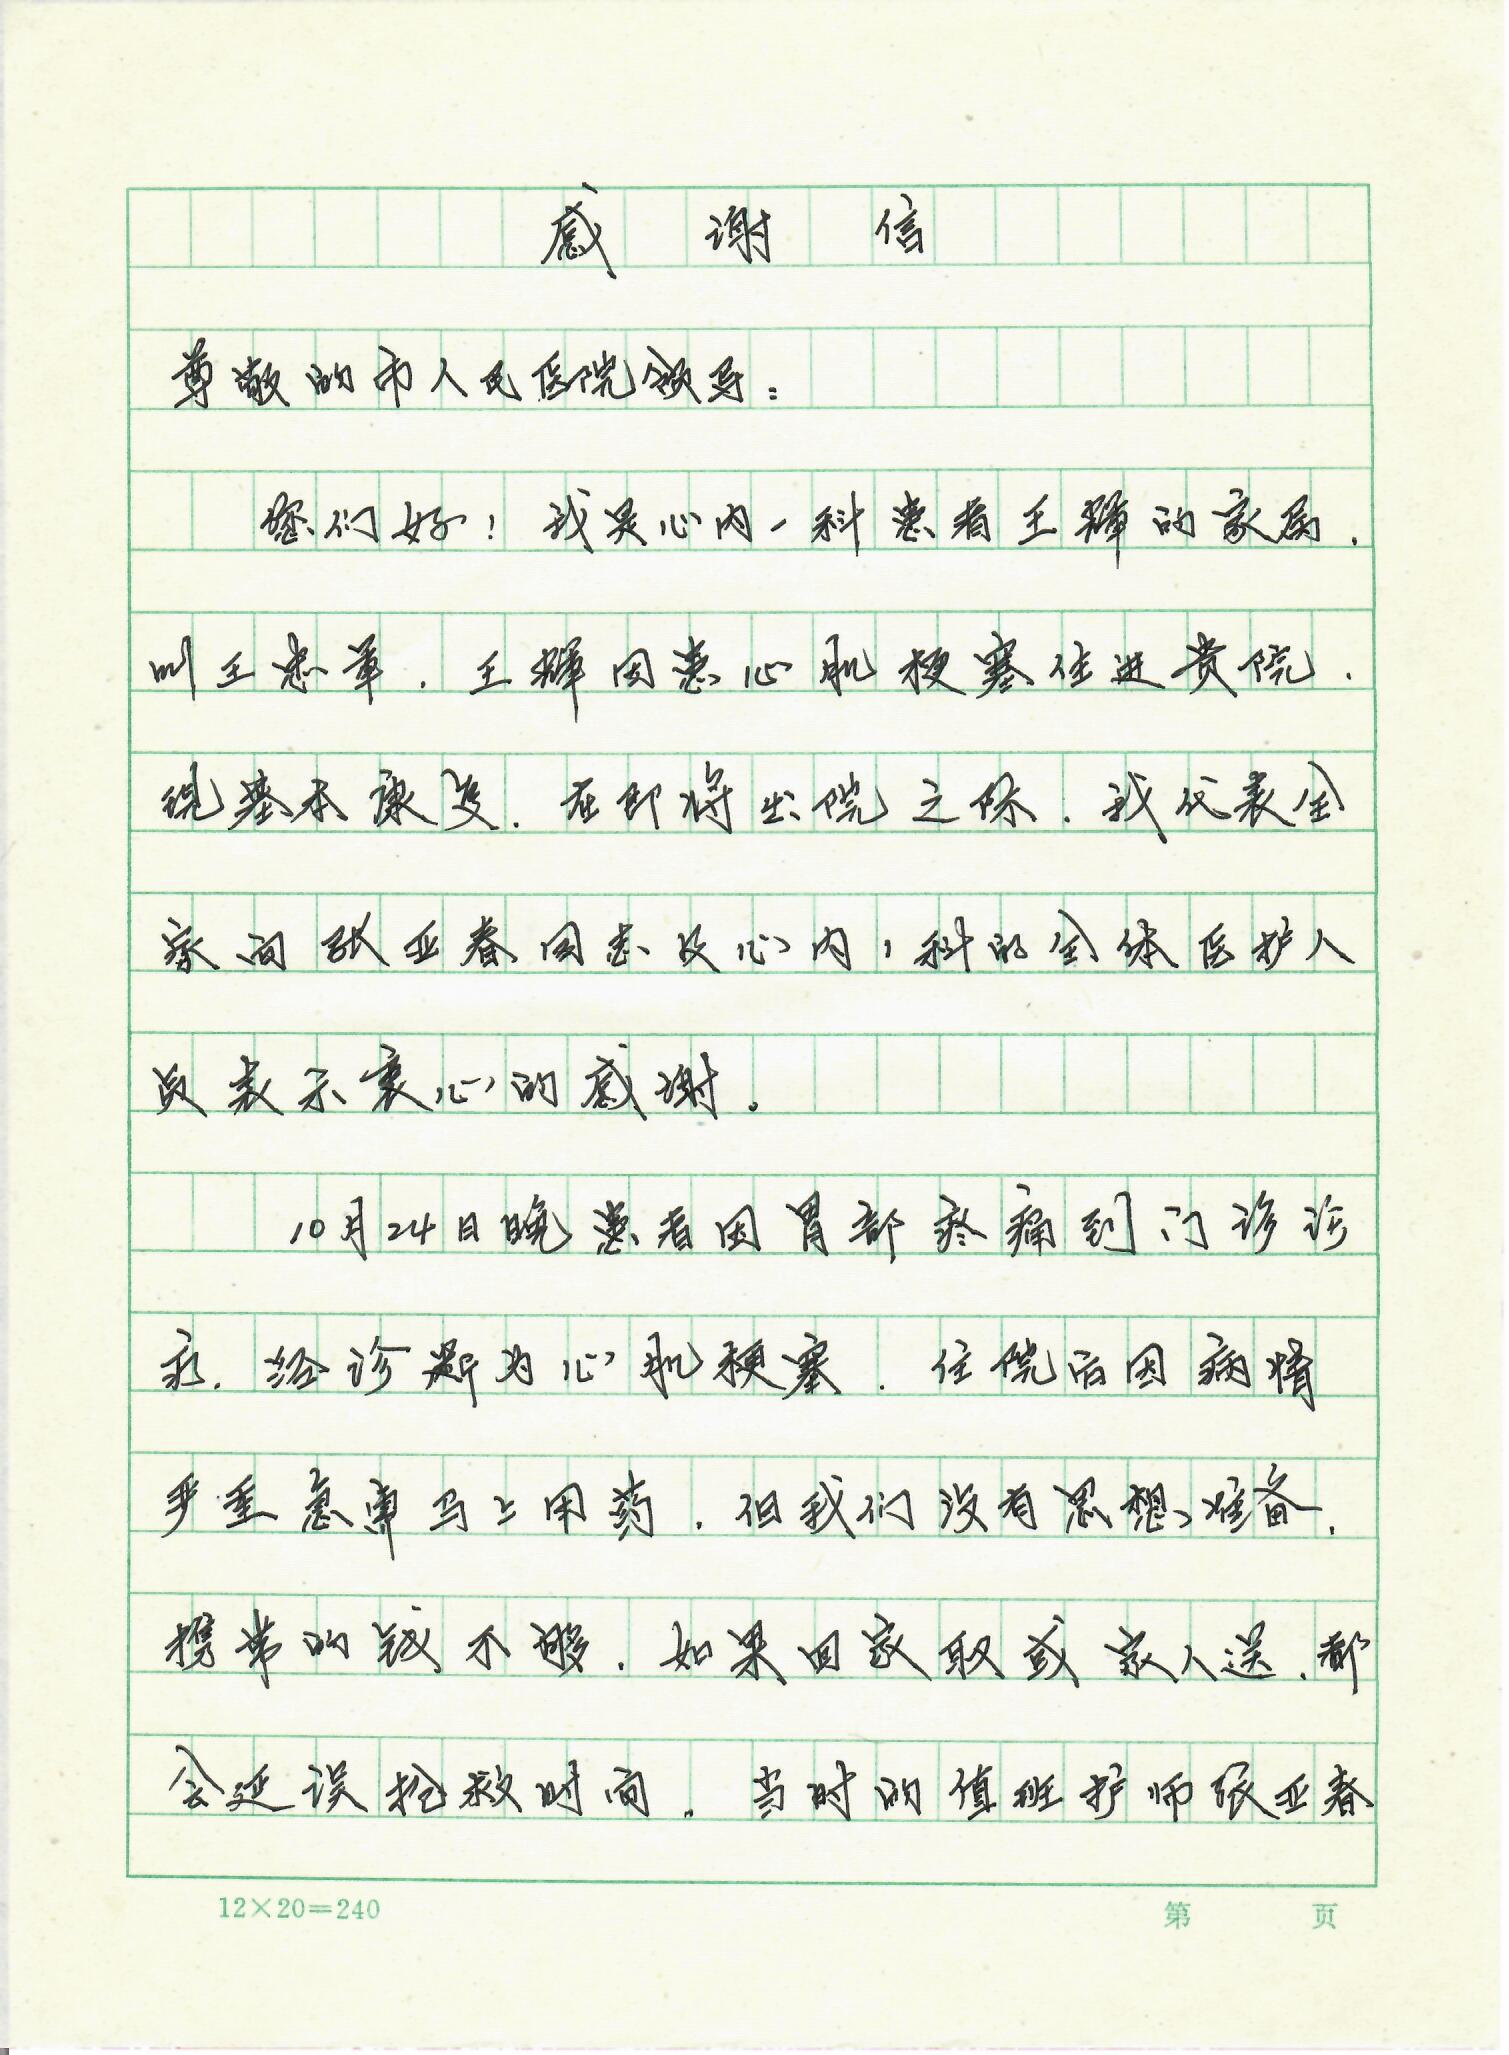 感谢信
尊敬的市人民医院领导：
您们好！我是心内一科患者王辉的家属.
叫王忠革.王辉因患心肌梗塞住进贵院.
现基本康复.在即将出院之际.我代表全
家向张亚春同志及心内1科的全体医护人
员表示衷心的感谢。
10月24日晚患者因胃部疼痛到门诊诊
疗.经诊断为心肌梗塞.住院后因病情
严重急需马上用药.但我们没有思想准备.
携带的钱不够.如果回家取或家人送.都
会延误抢救时间。当时的值班护师张亚春
12×20=240 第 页